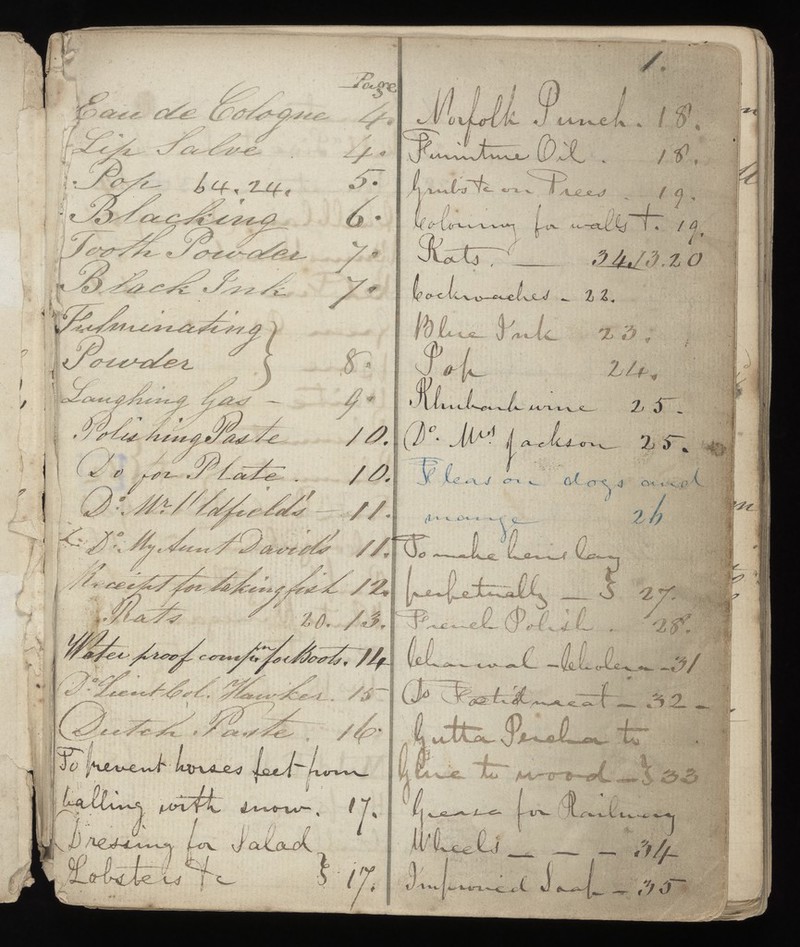 1.
Page
Eau de Cologne 4.
Lip Salve . 4.
Pop 64.24. 5.
Blacking 6.
Tooth Powder 7.
Black Ink 7.
Fulminating }
Powder } 8.
Laughing Gas – 9.
Polishing Paste 10.
Do for Plate . 10.
Do. Mr. – 11.
Do. My Aunt David's 11.
Receipt for taking fish 12.
Rats 20. 13.
Water proof for Boots. 14
Do. Lieut. Col. Hawker. 15
Dutch Paste . 16.
To prevent horses feet from
balling with snow. 17.
Dressing for Salad
Lobsters &c } 17.
Norfolk Punch. 18.
Furniture Oil . 18.
Grubs &c on Trees . 19.
Colouring for walls +. 19.
Rats. — 34.13.20
Cockroaches – 22.
Blue Ink 23.
Pop 24.
Rhubarb wine 25.
Do. Mrs. Jackson 25.
Fleas on dogs and
mange 26
To make hens lay
perpetually — } 27.
French Polish . 28.
Charcoal – Cholera – 31
Do meat – 32 –
Gutta Percha to
Glue to wood – } 33
Grease for Railway
Wheels – – – 34
Improved Soap – 35